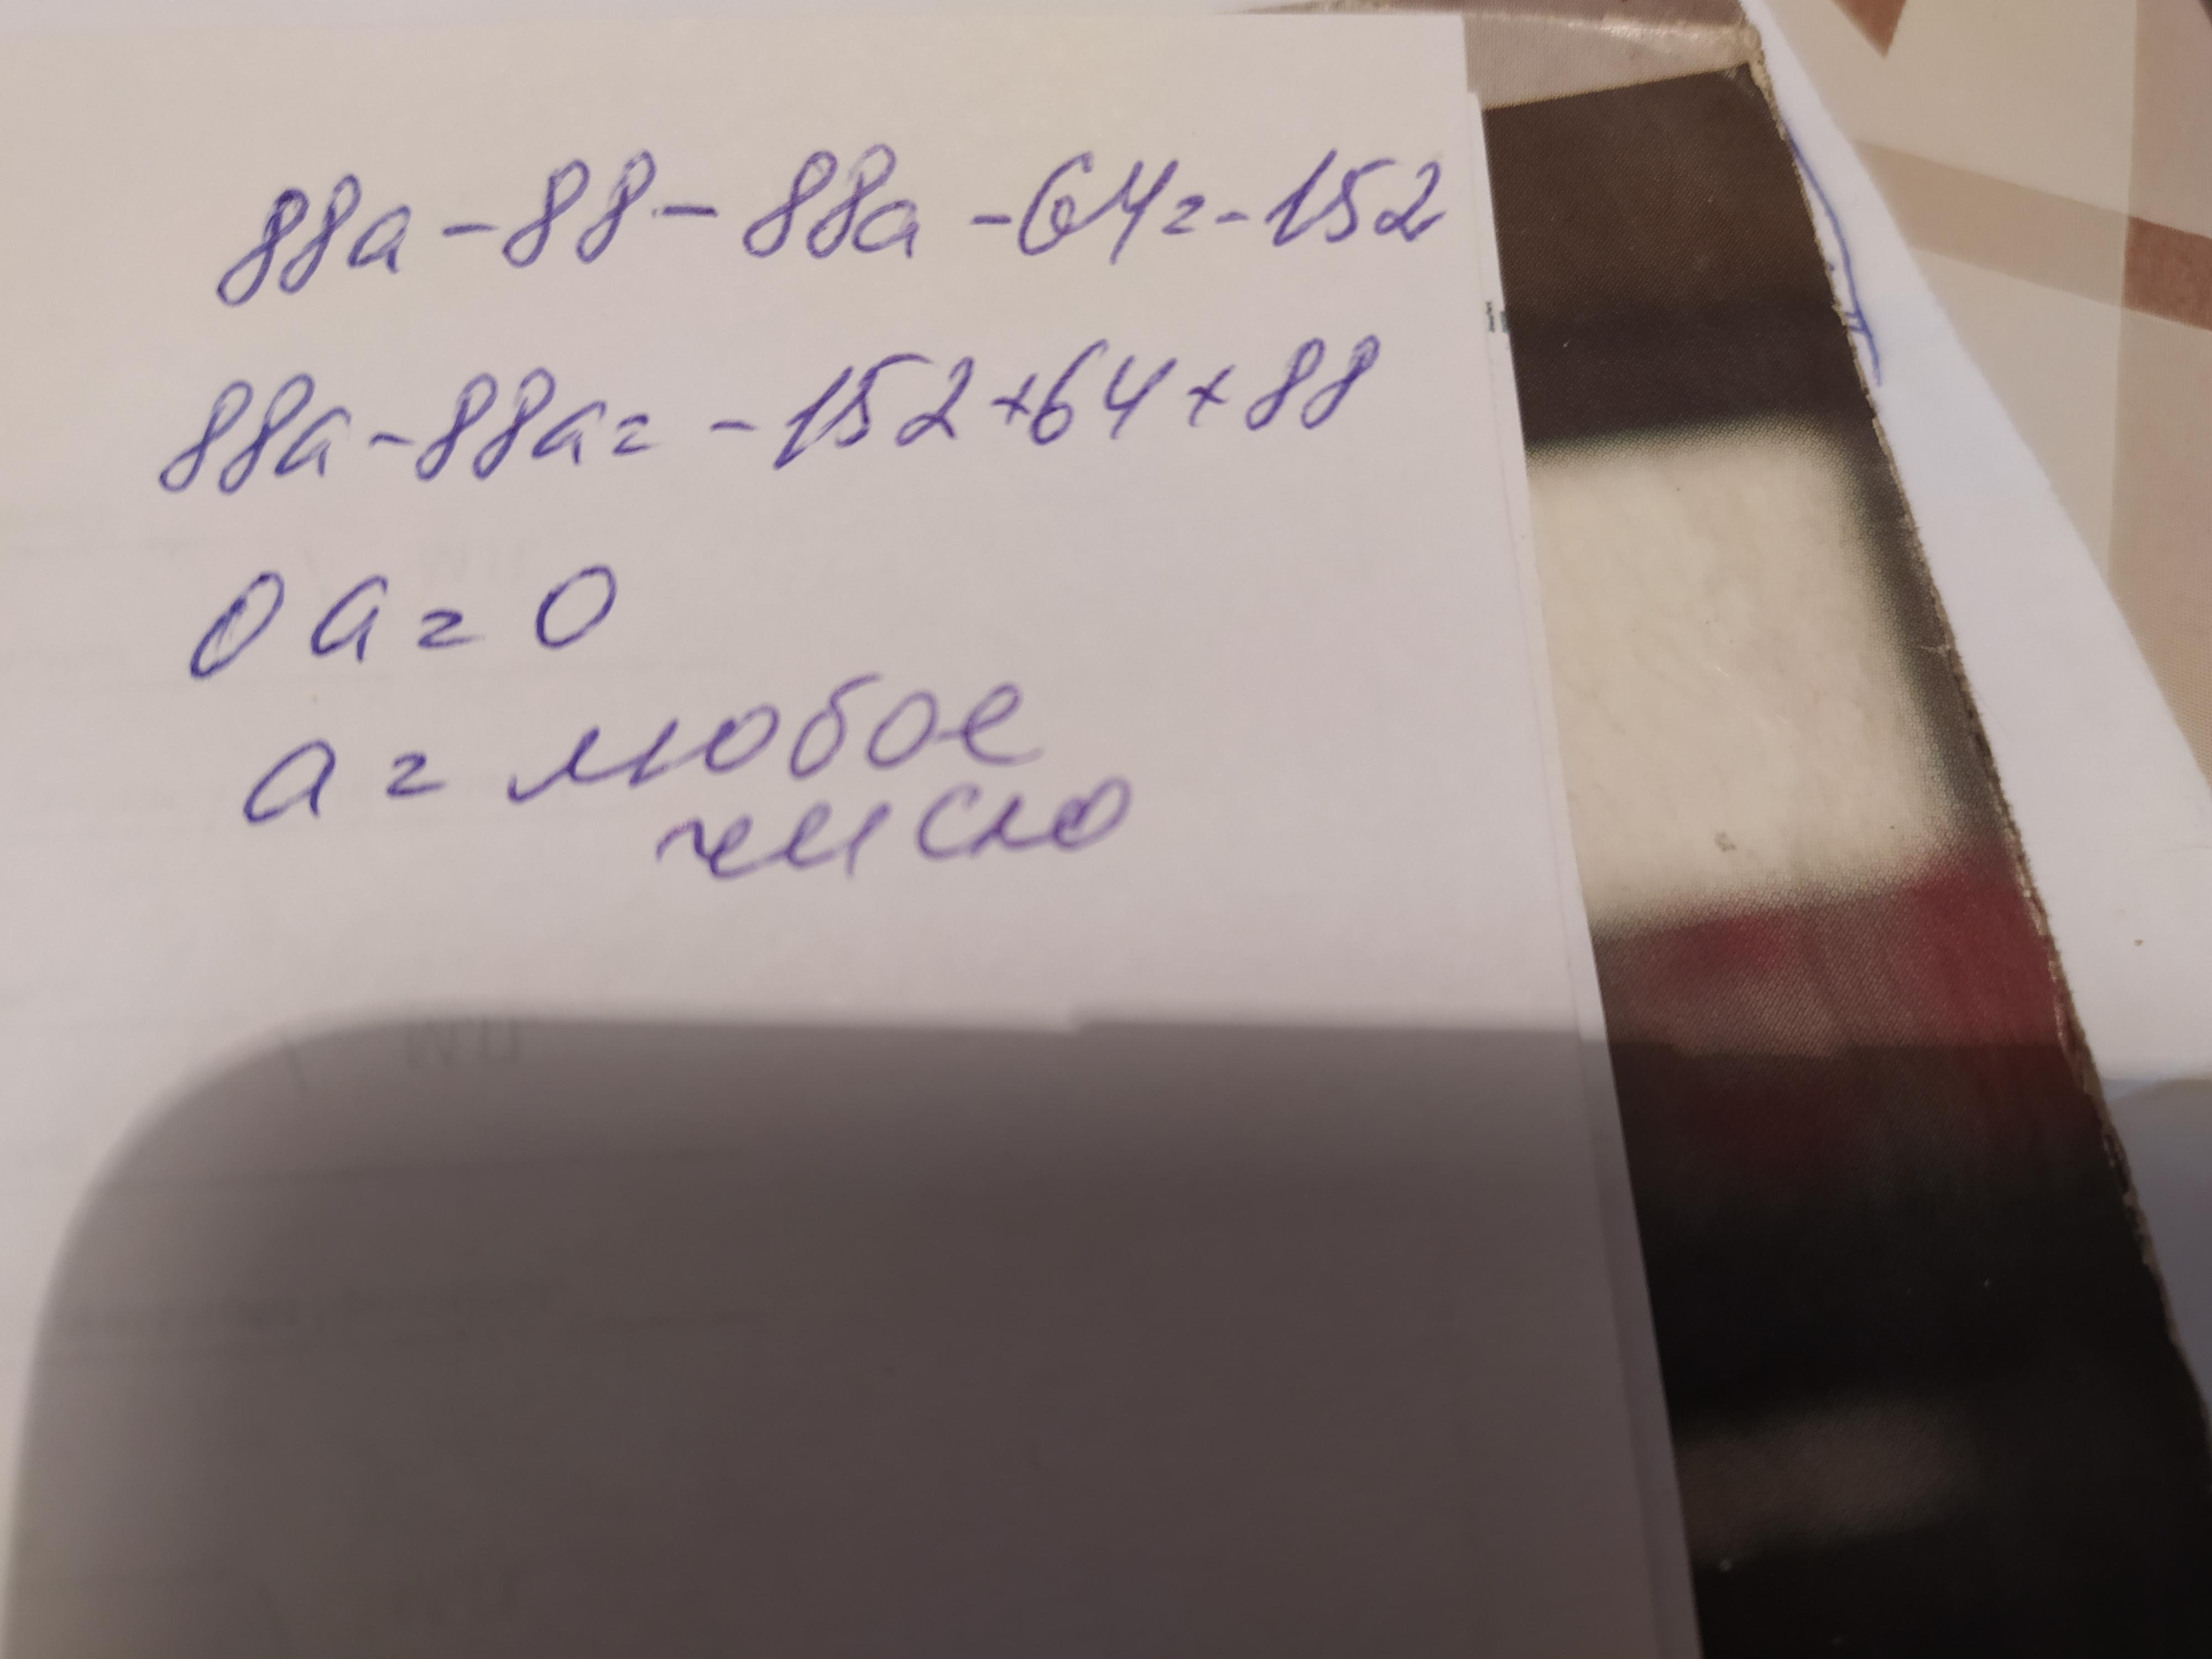 88a - 88 - 88a - 64 = -152
88a - 88a = -152 + 64 + 88
0 a = 0
a = любое
число